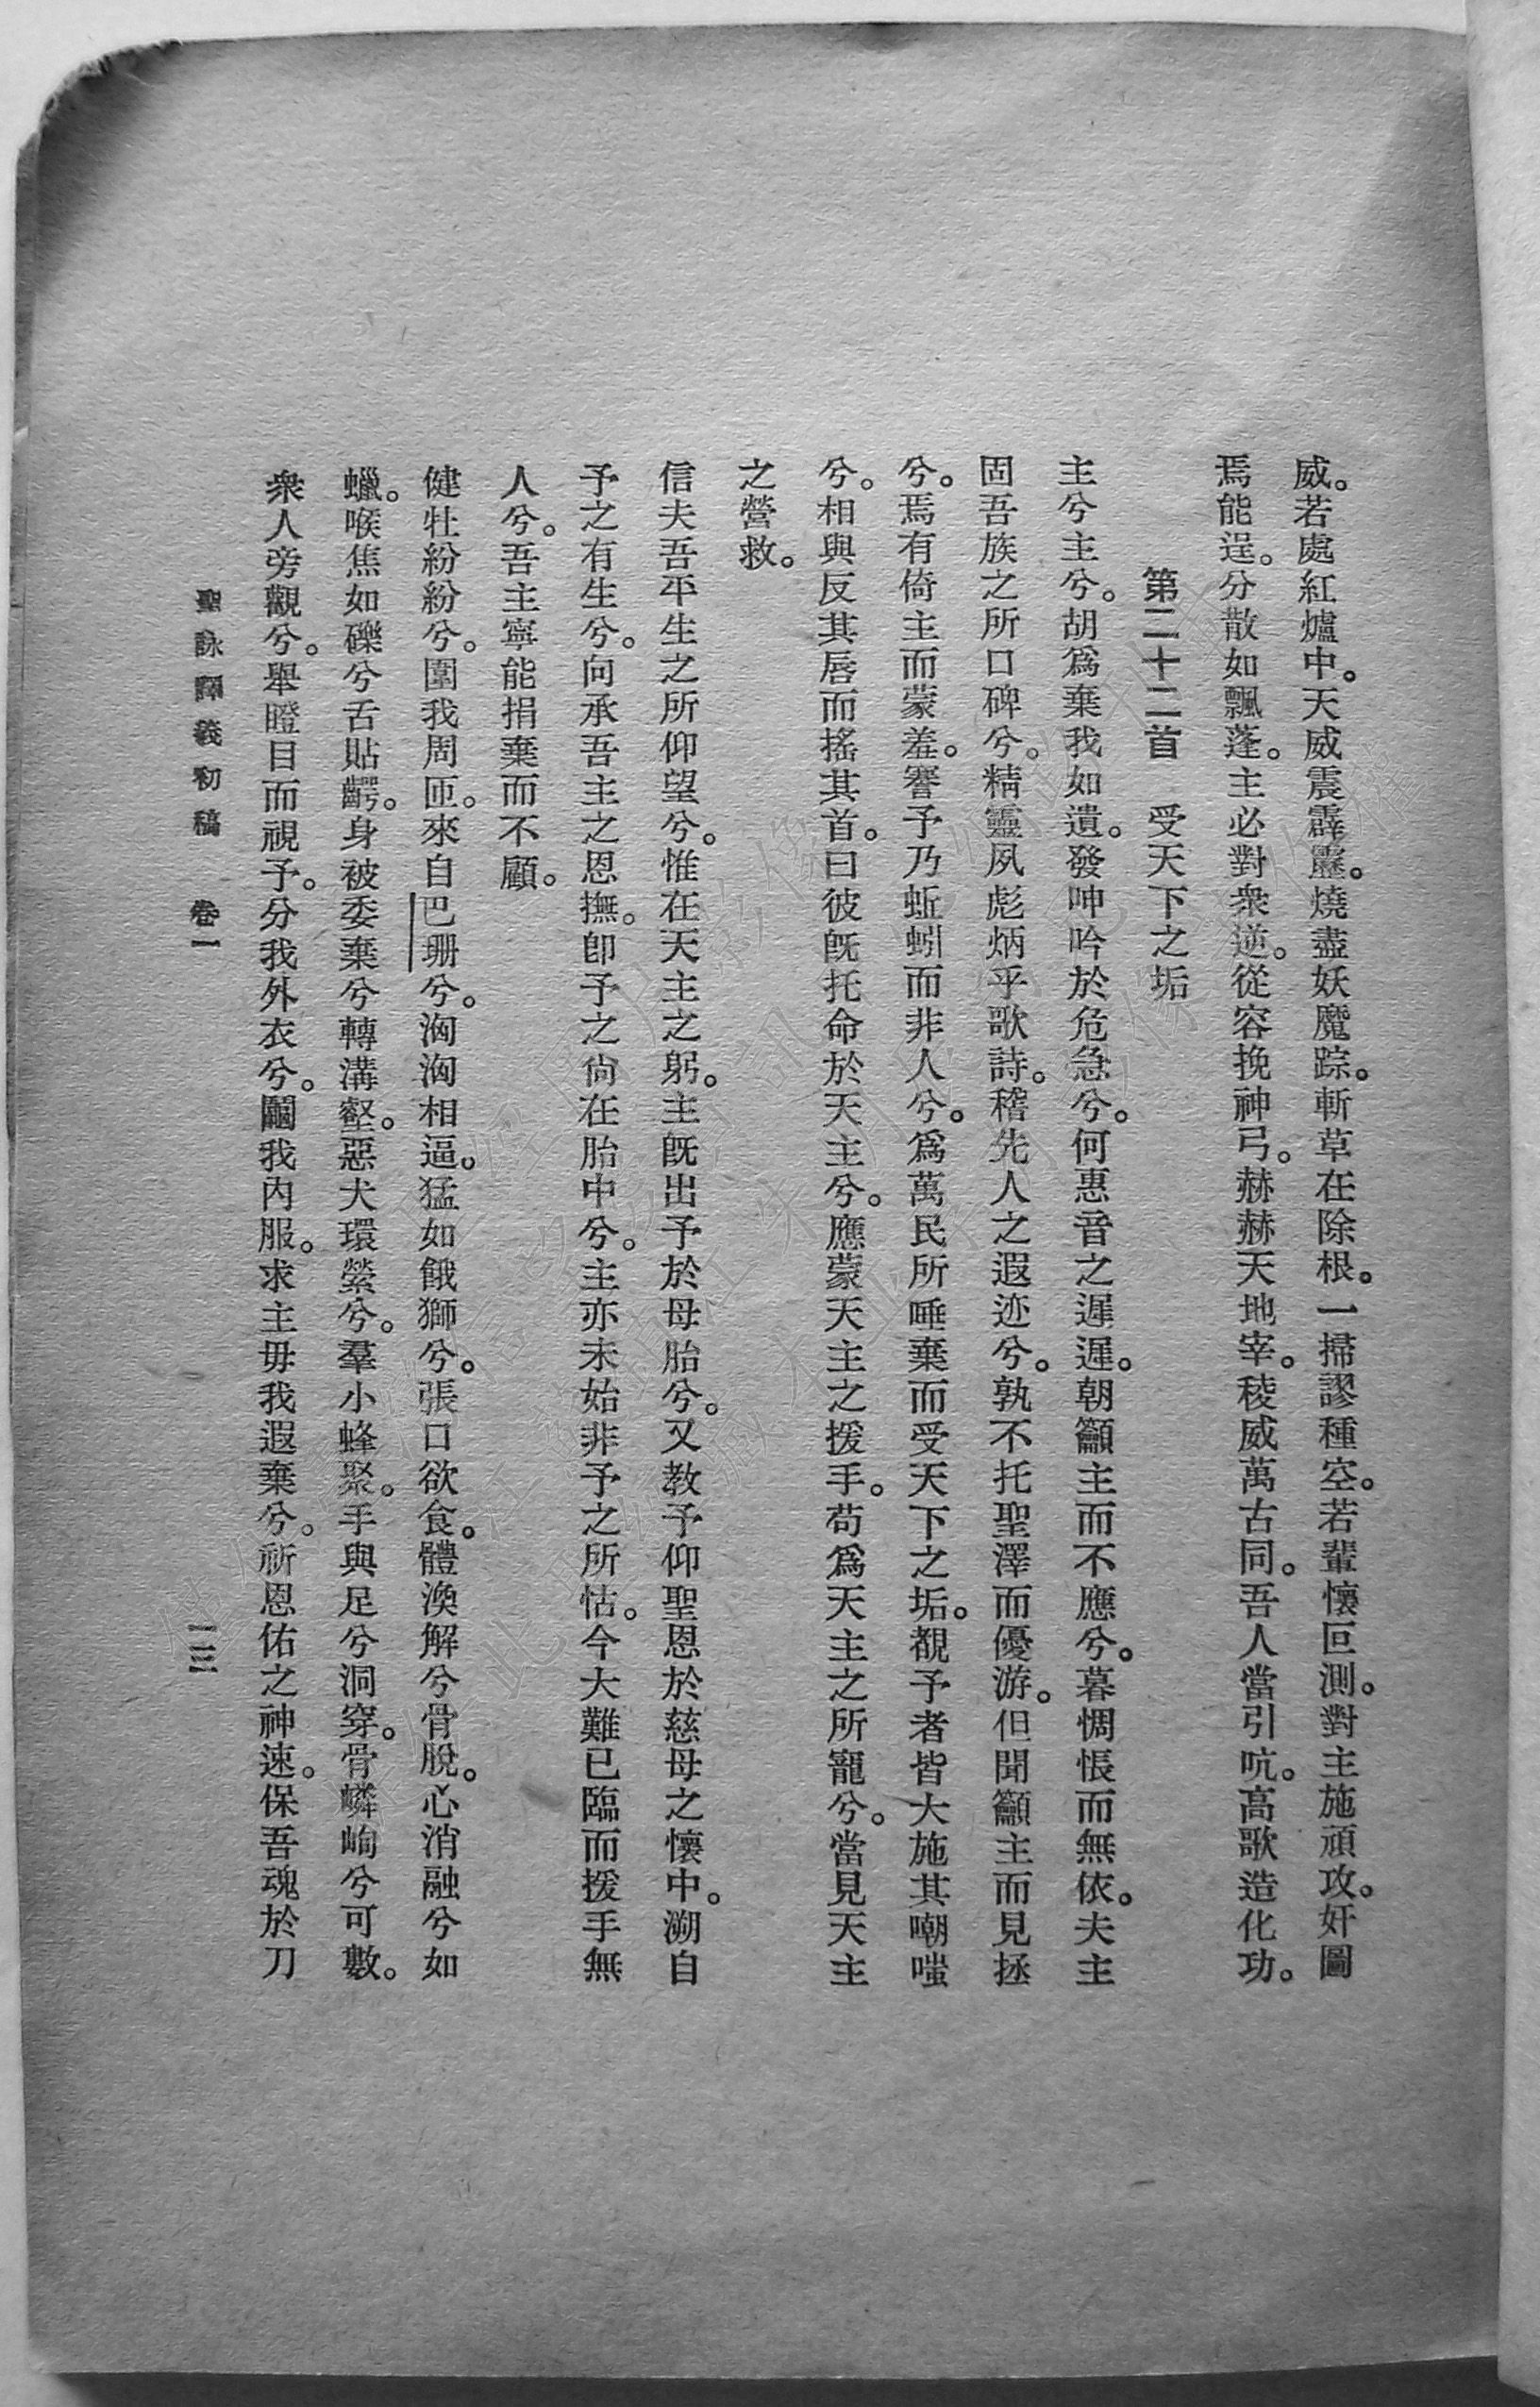 威。若處紅爐中。天威震霹靂。燒盡妖魔踪。斬草在除根。一掃謬種空。若輩懷叵測。對主施頑攻。奸圖
焉能逞。分散如飄蓬。主必對衆逆。從容挽神弓。赫赫天地宰。稜威萬古同。吾人當引吭。高歌造化功。
第二十二首　受天下之垢
主兮主兮。胡爲棄我如遺。發呻吟於危急兮。何惠音之遲遲。朝籲主而不應兮。暮惆悵而無依。夫主
固吾族之所口碑兮。精靈夙彪炳乎歌詩。稽先人之遐迹兮。孰不托聖澤而優游。但聞籲主而見拯
兮。焉有倚主而蒙羞。謇予乃蚯蚓而非人兮。爲萬民所唾棄而受天下之垢。覩予者皆大施其嘲嗤
兮。相與反其唇而搖其首。曰彼旣托命於天主兮。應蒙天主之援手。苟爲天主之所寵兮。當見天主
之營救。
信夫吾平生之所仰望兮。惟在天主之躬。主旣出予於母胎兮。又教予仰聖恩於慈母之懷中。溯自
予之有生兮。向承吾主之恩撫。卽予之尙在胎中兮。主亦未始非予之所怙。今大難已臨而援手無
人兮。吾主寧能捐棄而不顧。
健牡紛紛兮。圍我周匝。來自巴珊兮。洶洶相逼。猛如餓獅兮。張口欲食。體渙解兮骨脫。心消融兮如
蠟。喉焦如礫兮舌貼齶。身被委棄兮轉溝壑。惡犬環縈兮。羣小蜂聚。手與足兮洞穿。骨嶙峋兮可數。
衆人旁觀兮。舉瞪目而視予。分我外衣兮。鬮我內服。求主毋我遐棄兮。祈恩佑之神速。保吾魂於刀
聖詠譯義初稿　卷一　一三